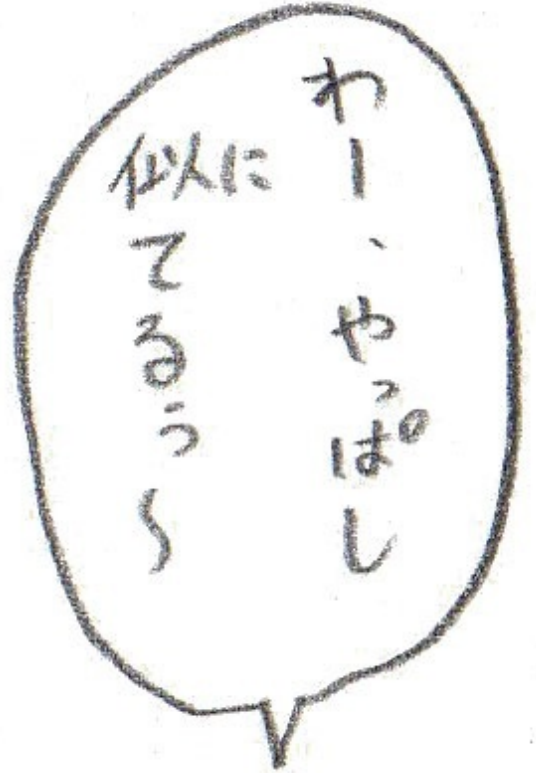 わー、やっぱし
似にてるぅ〜